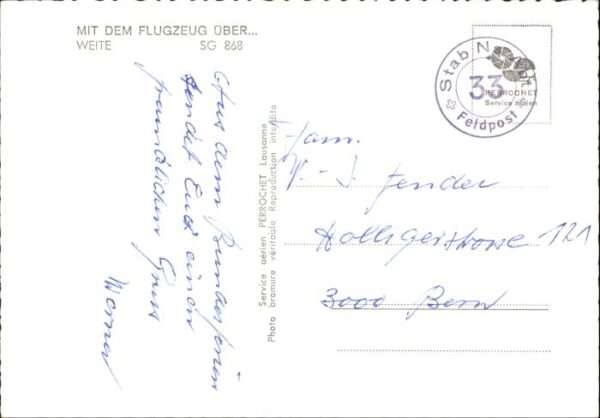 MIT DEM FLUGZEUG ÜBER...
WEITE SG 868
Aus dem Bundesferien
sendet Euch einen
freundlichen Gruss
Werner
Service aérien PERROCHET Lausanne
Photo bromure véritable Reproduction interdite
Stab N
33
Feldpost
PERROCHET
Service aérien
Fam.
Fender
3000 Bern
121